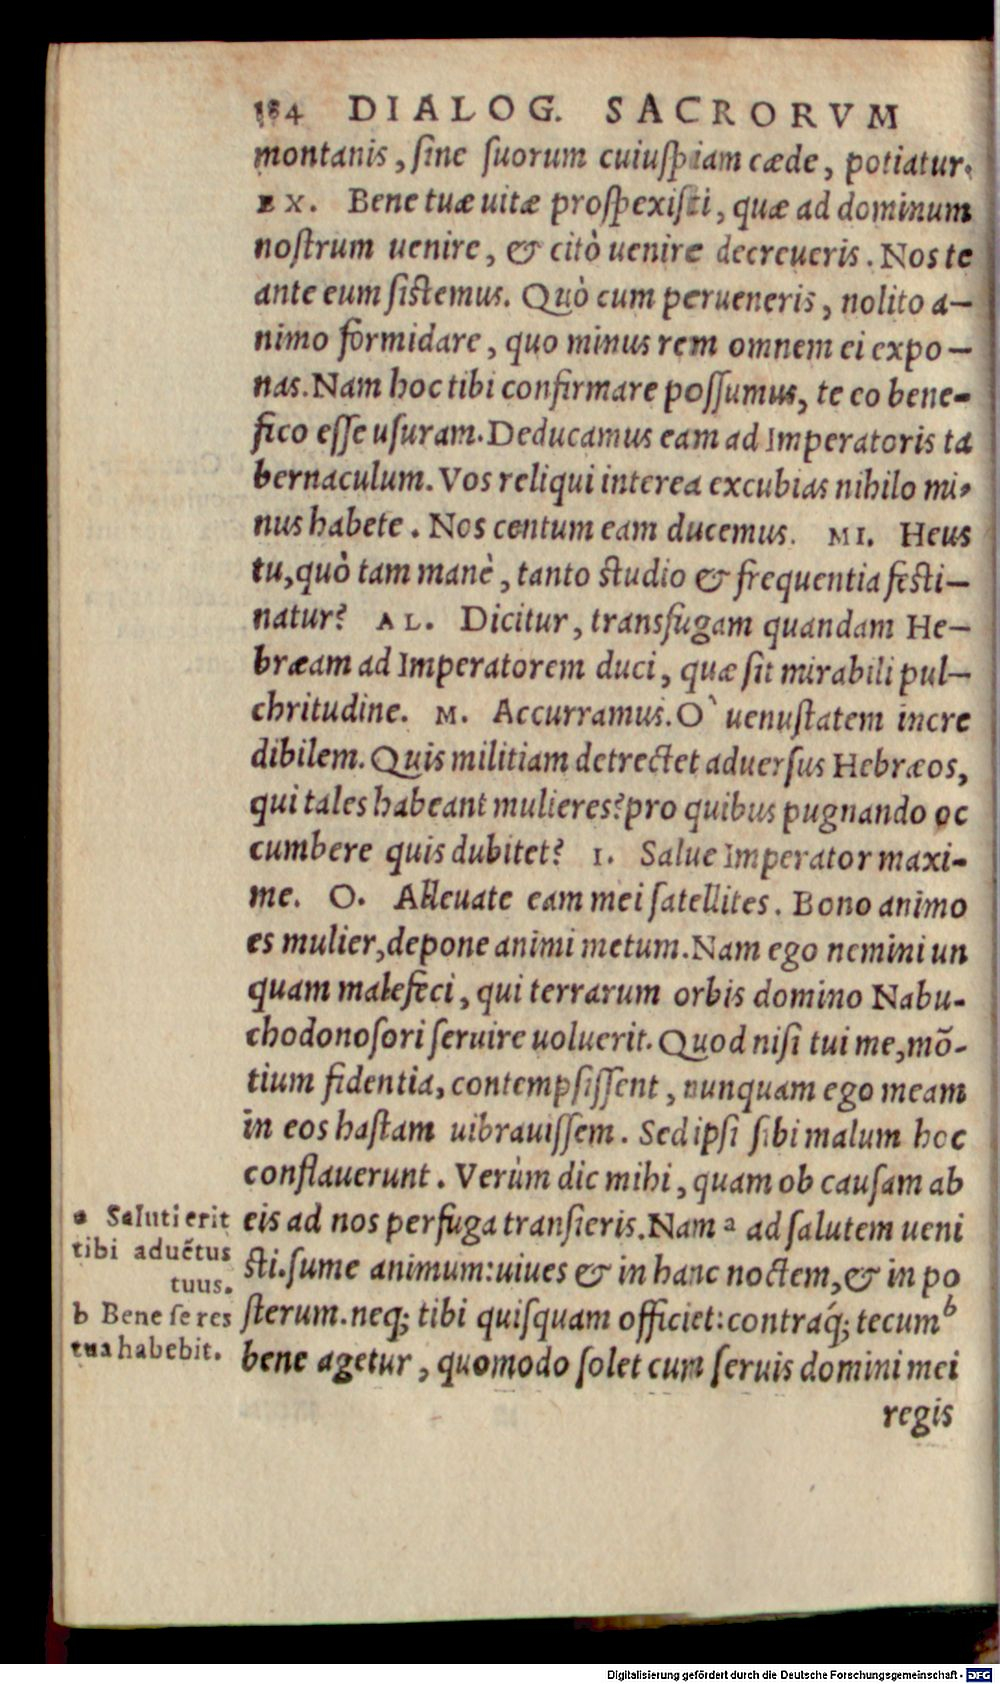 184 DIALOG. SACRORVM
montanis, sine suorum cuiuspiam cæde, potiatur.
EX. Bene tuæ uitæ prospexisti, quæ ad dominum
nostrum uenire, & citò uenire decreueris. Nos te
ante eum sistemus. Quò cum perueneris, nolito a-
nimo formidare, quo minus rem omnem ei expo-
nas. Nam hoc tibi confirmare possumus, te eo bene-
fico esse usuram. Deducamus eam ad Imperatoris ta
bernaculum. Vos reliqui interea excubias nihilo mi-
nus habete. Nos centum eam ducemus. MI. Heus
tu, quò tam manè, tanto studio & frequentia festi-
natur? AL. Dicitur, transfugam quandam He-
bræam ad Imperatorem duci, quæ sit mirabili pul-
chritudine. M. Accurramus. O` uenustatem incre
dibilem. Quis militiam detrectet aduersus Hebræos,
qui tales habeant mulieres? pro quibus pugnando oc
cumbere quis dubitet? I. Salue Imperator maxi-
me. O. Alleuate eam mei satellites. Bono animo
es mulier, depone animi metum. Nam ego nemini un
quam malefeci, qui terrarum orbis domino Nabu-
chodonosori seruire uoluerit. Quod nisi tui me, mõ-
tium fidentia, contempsissent, nunquam ego meam
in eos hastam uibrauissem. Sed ipsi sibi malum hoc
conflauerunt. Verùm dic mihi, quam ob causam ab
eis ad nos perfuga transieris. Nam a ad salutem ueni
sti. sume animum: uiues & in hanc noctem, & in po
sterum. neq; tibi quisquam officiet: contraq́; tecum b
bene agetur, quomodo solet cum seruis domini mei
regis
a Saluti erit
tibi aduẽtus
tuus.
b Bene se res
tua habebit.
Digitalisierung gefördert durch die Deutsche Forschungsgemeinschaft - DFG